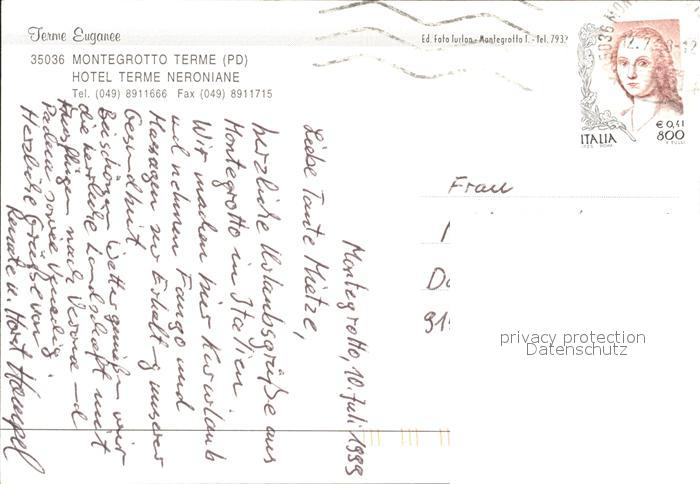 Terme Euganee
35036 MONTEGROTTO TERME (PD)
HOTEL TERME NERONIANE
Tel. (049) 8911666 Fax (049) 8911715
Ed. Foto Turlon - Montegrotto T. - Tel. 793
ITALIA
€ 0,41
800
Montegrotto, 10. Juli 1999
Liebe Tante Mietze,
herzliche Urlaubsgrüße aus
Montegrotto in Italien.
Wir machen hier Kururlaub
und nehmen Fango und
Massagen zur Erhaltung unserer
Gesundheit.
Bei schönem Wetter genießen wir
die herrliche Landschaft mit
Ausflügen nach Verona und
Padua sowie Venedig.
Herzliche Grüße von
Renate u. Horst Hampel
Frau
privacy protection
Datenschutz